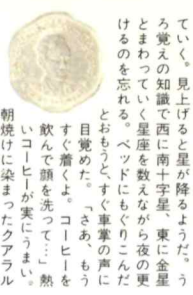 ていく。見上げると星が降るようだ。う
ろ覚えの知識で西に南十字星、東に金星
とまわっていく星座を数えながら夜の更
けるのを忘れる。ベッドにもぐりこんだ
とおもうと、すぐ車掌の声に
目覚めた。「さあ、もう
すぐ着くよ。コーヒーを
飲んで顔を洗って…」熱
いコーヒーが実にうまい。
朝焼けに染まったクアラル